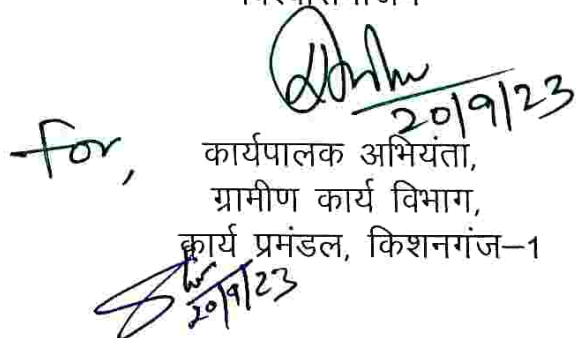 20/9/23
For,
कार्यपालक अभियंता,
ग्रामीण कार्य विभाग,
कार्य प्रमंडल, किशनगंज–1
20/9/23